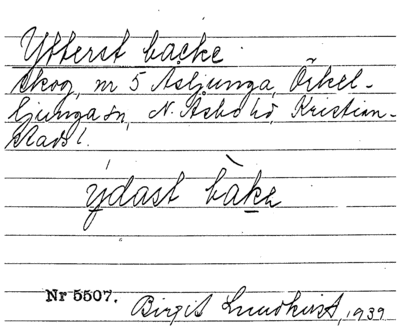 Ytterst backe
skog, nr 5 Åsljunga, Örkel-
ljunga sn, N. Åsbo hd, Kristian-
stads l.
ýdast bàkə
Nr 5507.
Birgit Lundkvist, 1939